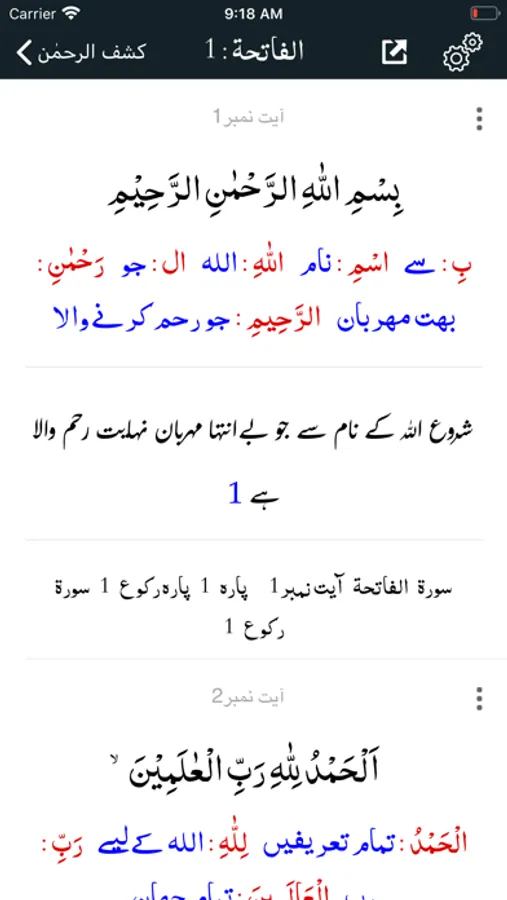 Carrier 9:18 AM
کشف الرحمٰن الفاتحة : 1
آیت نمبر1
بِسْمِ اللّٰهِ الرَّحْمٰنِ الرَّحِيْمِ
بِ : سے اسْمِ : نام اللّٰهِ : الله ال : جو رَحْمٰنِ :
بهت مهربان الرَّحِيمِ : جو رحم کرنے والا
شروع اللہ کے نام سے جو بے انتہا مہربان نہایت رحم والا
ہے 1
سورة الفاتحة آیت نمبر1 پارہ 1 پارہ رکوع 1 سورة
رکوع 1
آیت نمبر2
اَلْحَمْدُ لِلّٰهِ رَبِّ الْعٰلَمِيْنَ ۙ
الْحَمْدُ : تمام تعریفیں لِلّٰهِ : الله کے لیے رَبِّ :
رب الْعَالَمِينَ : تمام جہان